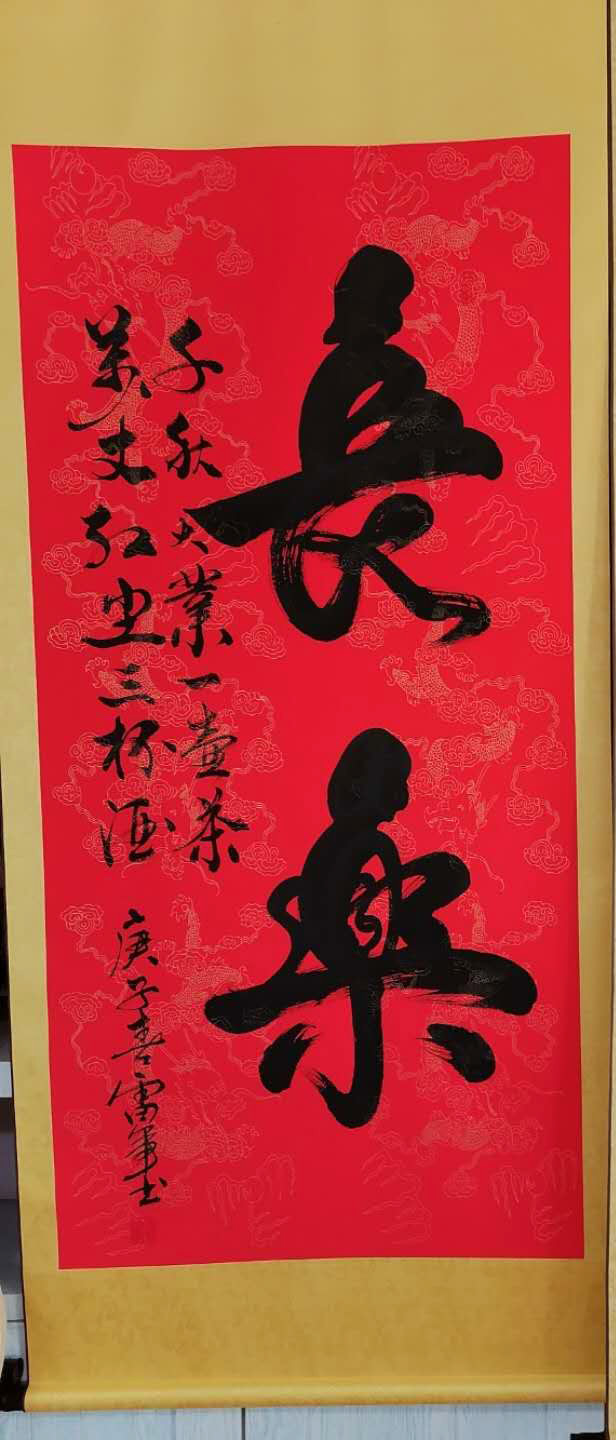 長樂
千秋大業一壺茶
萬丈红尘三杯酒
庚子春雷军书